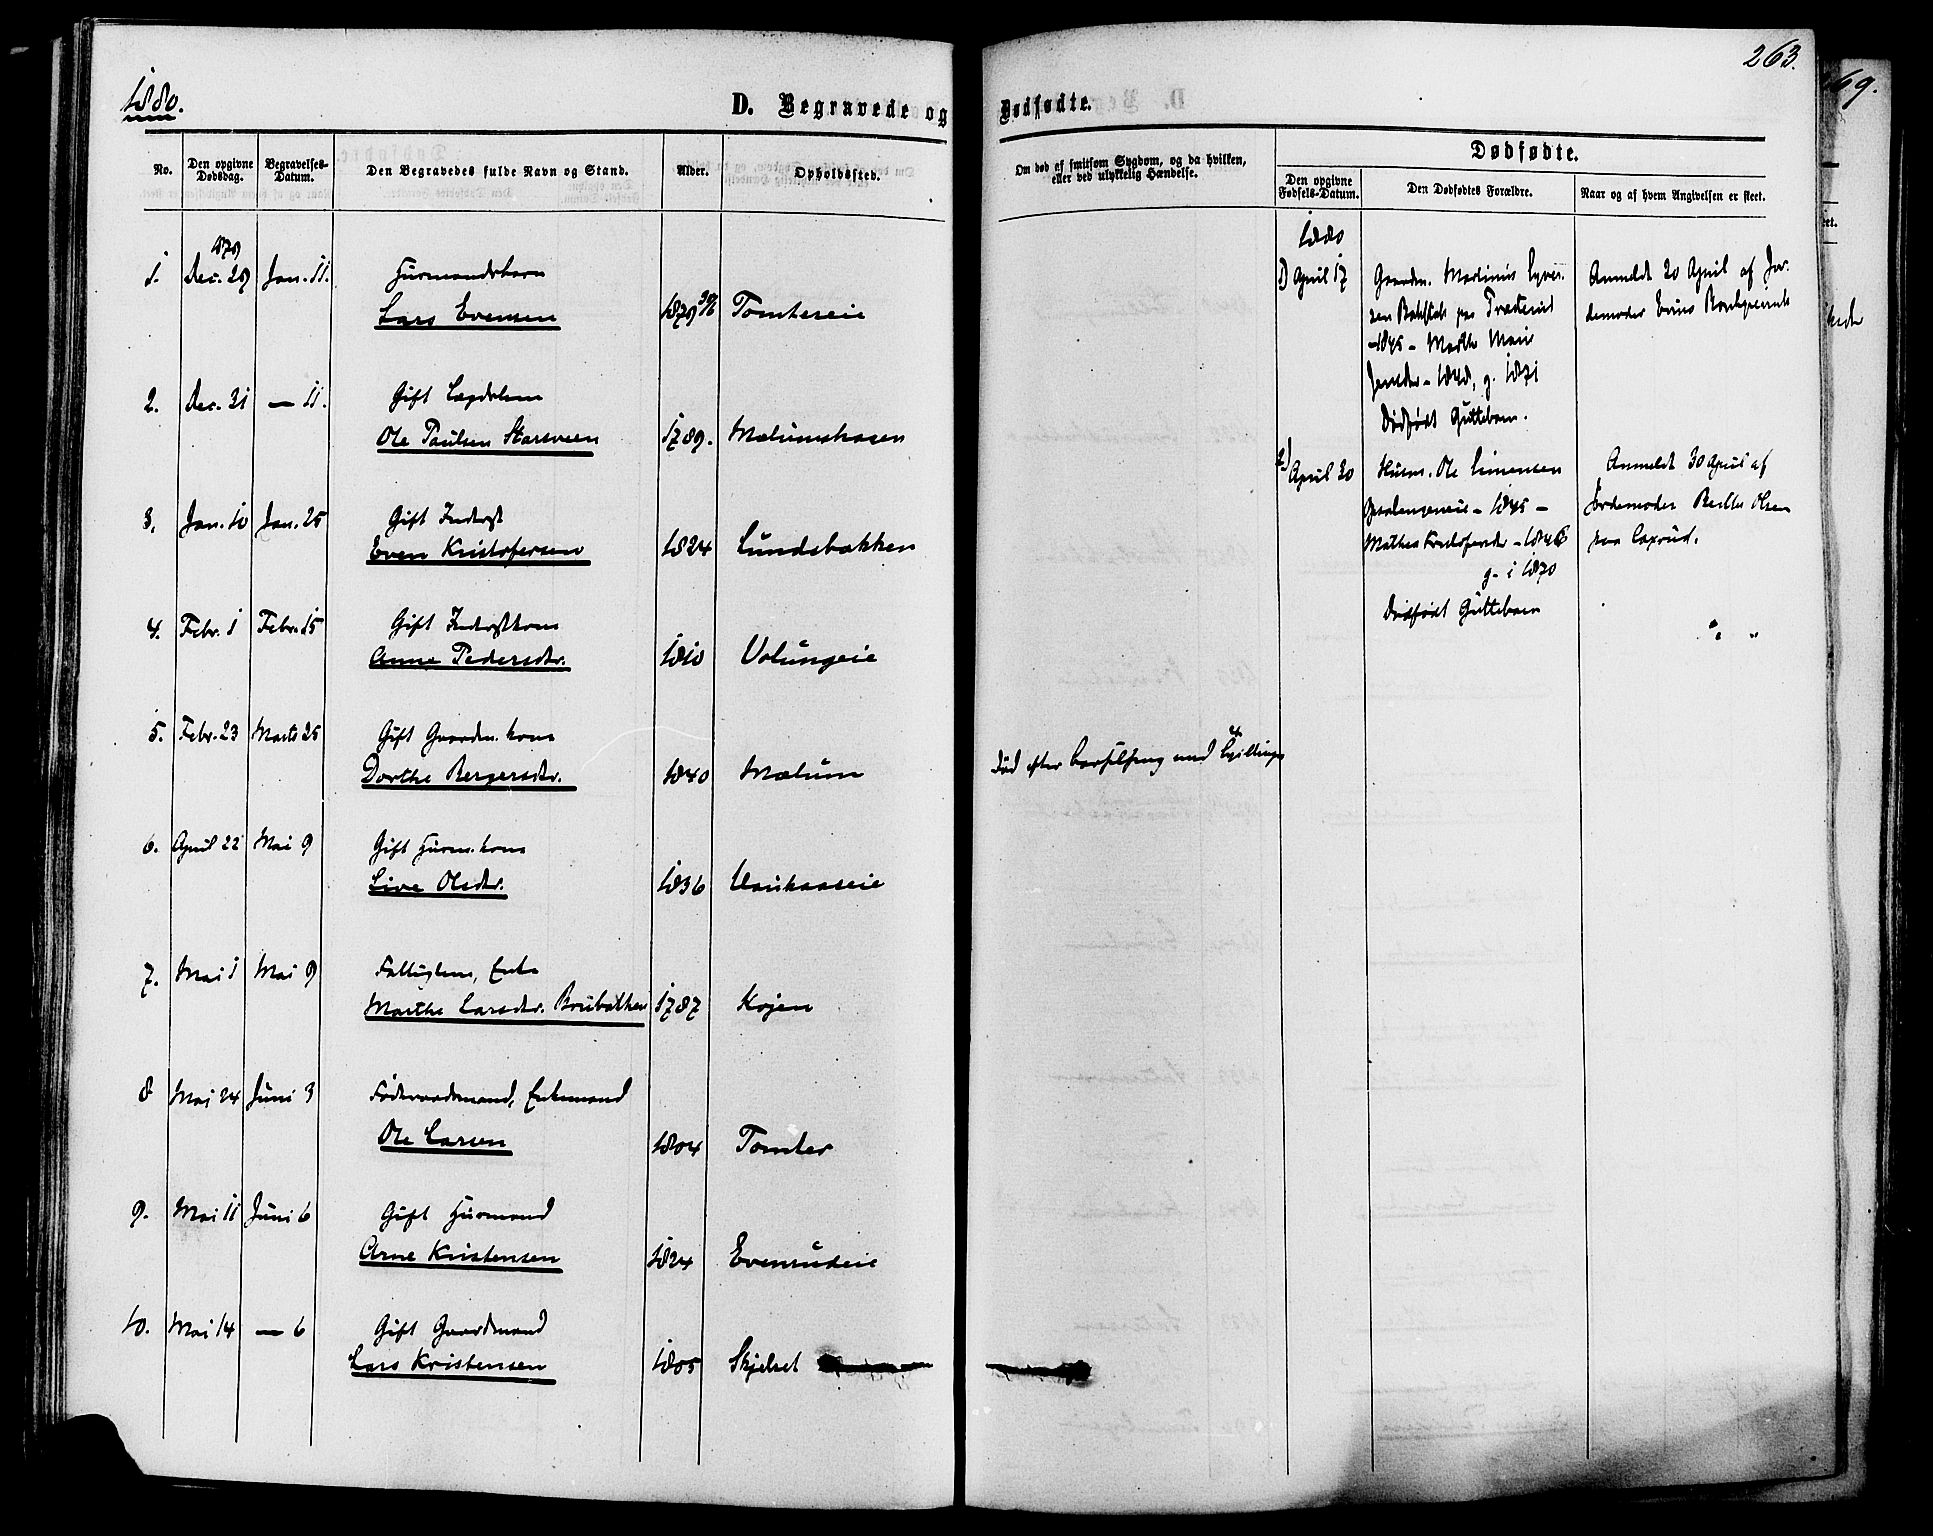 1880.
263.
69.
D. Begravede og Dødfødte.
No.
Den opgivne Dødsdag.
Begravelses-Datum.
Den Begravedes fulde Navn og Stand.
Alder.
Opholdssted.
Om død af smitsom Sygdom, og da hvilken, eller ved ulykkelig Hændelse.
Dødfødte.
Den opgivne Fødsels-Datum.
Den Dødfødtes Forældre.
Naar og af hvem Angivelsen er skeet.
1. Dec. 29 Jan. 11. Husmandsbarn
Lars Evensen 1879 30/6 Tomtereie
2. Dec. 31 — 11. Gift Lægdslem
Ole Paulsen 1789. Mælumshagen
3. Jan. 10 Jan. 25 Gift Inderst
Even Kristofersen 1824 Lundsbakken
4. Febr. 1 Febr. 15 Gift Inderstkone
Anne Pedersdtr. 1810 Volungeie
5. Febr. 23 Marts 25 Gift Gaardm. kone
Dorthe Bergersdtr. 1840 Mælum
Død efter Barselseng med Tvillinger
6. April 22 Mai 9 Gift Husm. kone
Live Olsdtr. 1836
7. Mai 1 Mai 9 Fattiglem, Enke
Marthe Larsdtr. Brubakken 1787 Kojen
8 Mai 24 Juni 3 Føderaadsmand, Enkemand
Ole Larsen 1804 Tomter
9. Mai 11 Juni 6 Gift Husmand
Arne Kristensen 1824 Evenrudeie
10. Mai 14 — 6 Gift Gaardmand
Lars Kristensen 1805 Skjelset
1880
1) April 17 Gaardm. Martinus Syver-
sen Bakstad paa
- 1845 - Marthe Marie
Jensdtr - 1848, g. 1871
Dødfødt Guttebarn.
Anmeldt 20 April af Jor-
demoder
2) April 30 Husm. Ole Simensen
- 1845 -
Mathea Kristofersdtr - 1846
g. i 1870
Dødfødt Guttebarn
Anmeldt 30 April af
Jordemoder Berthe Olsen